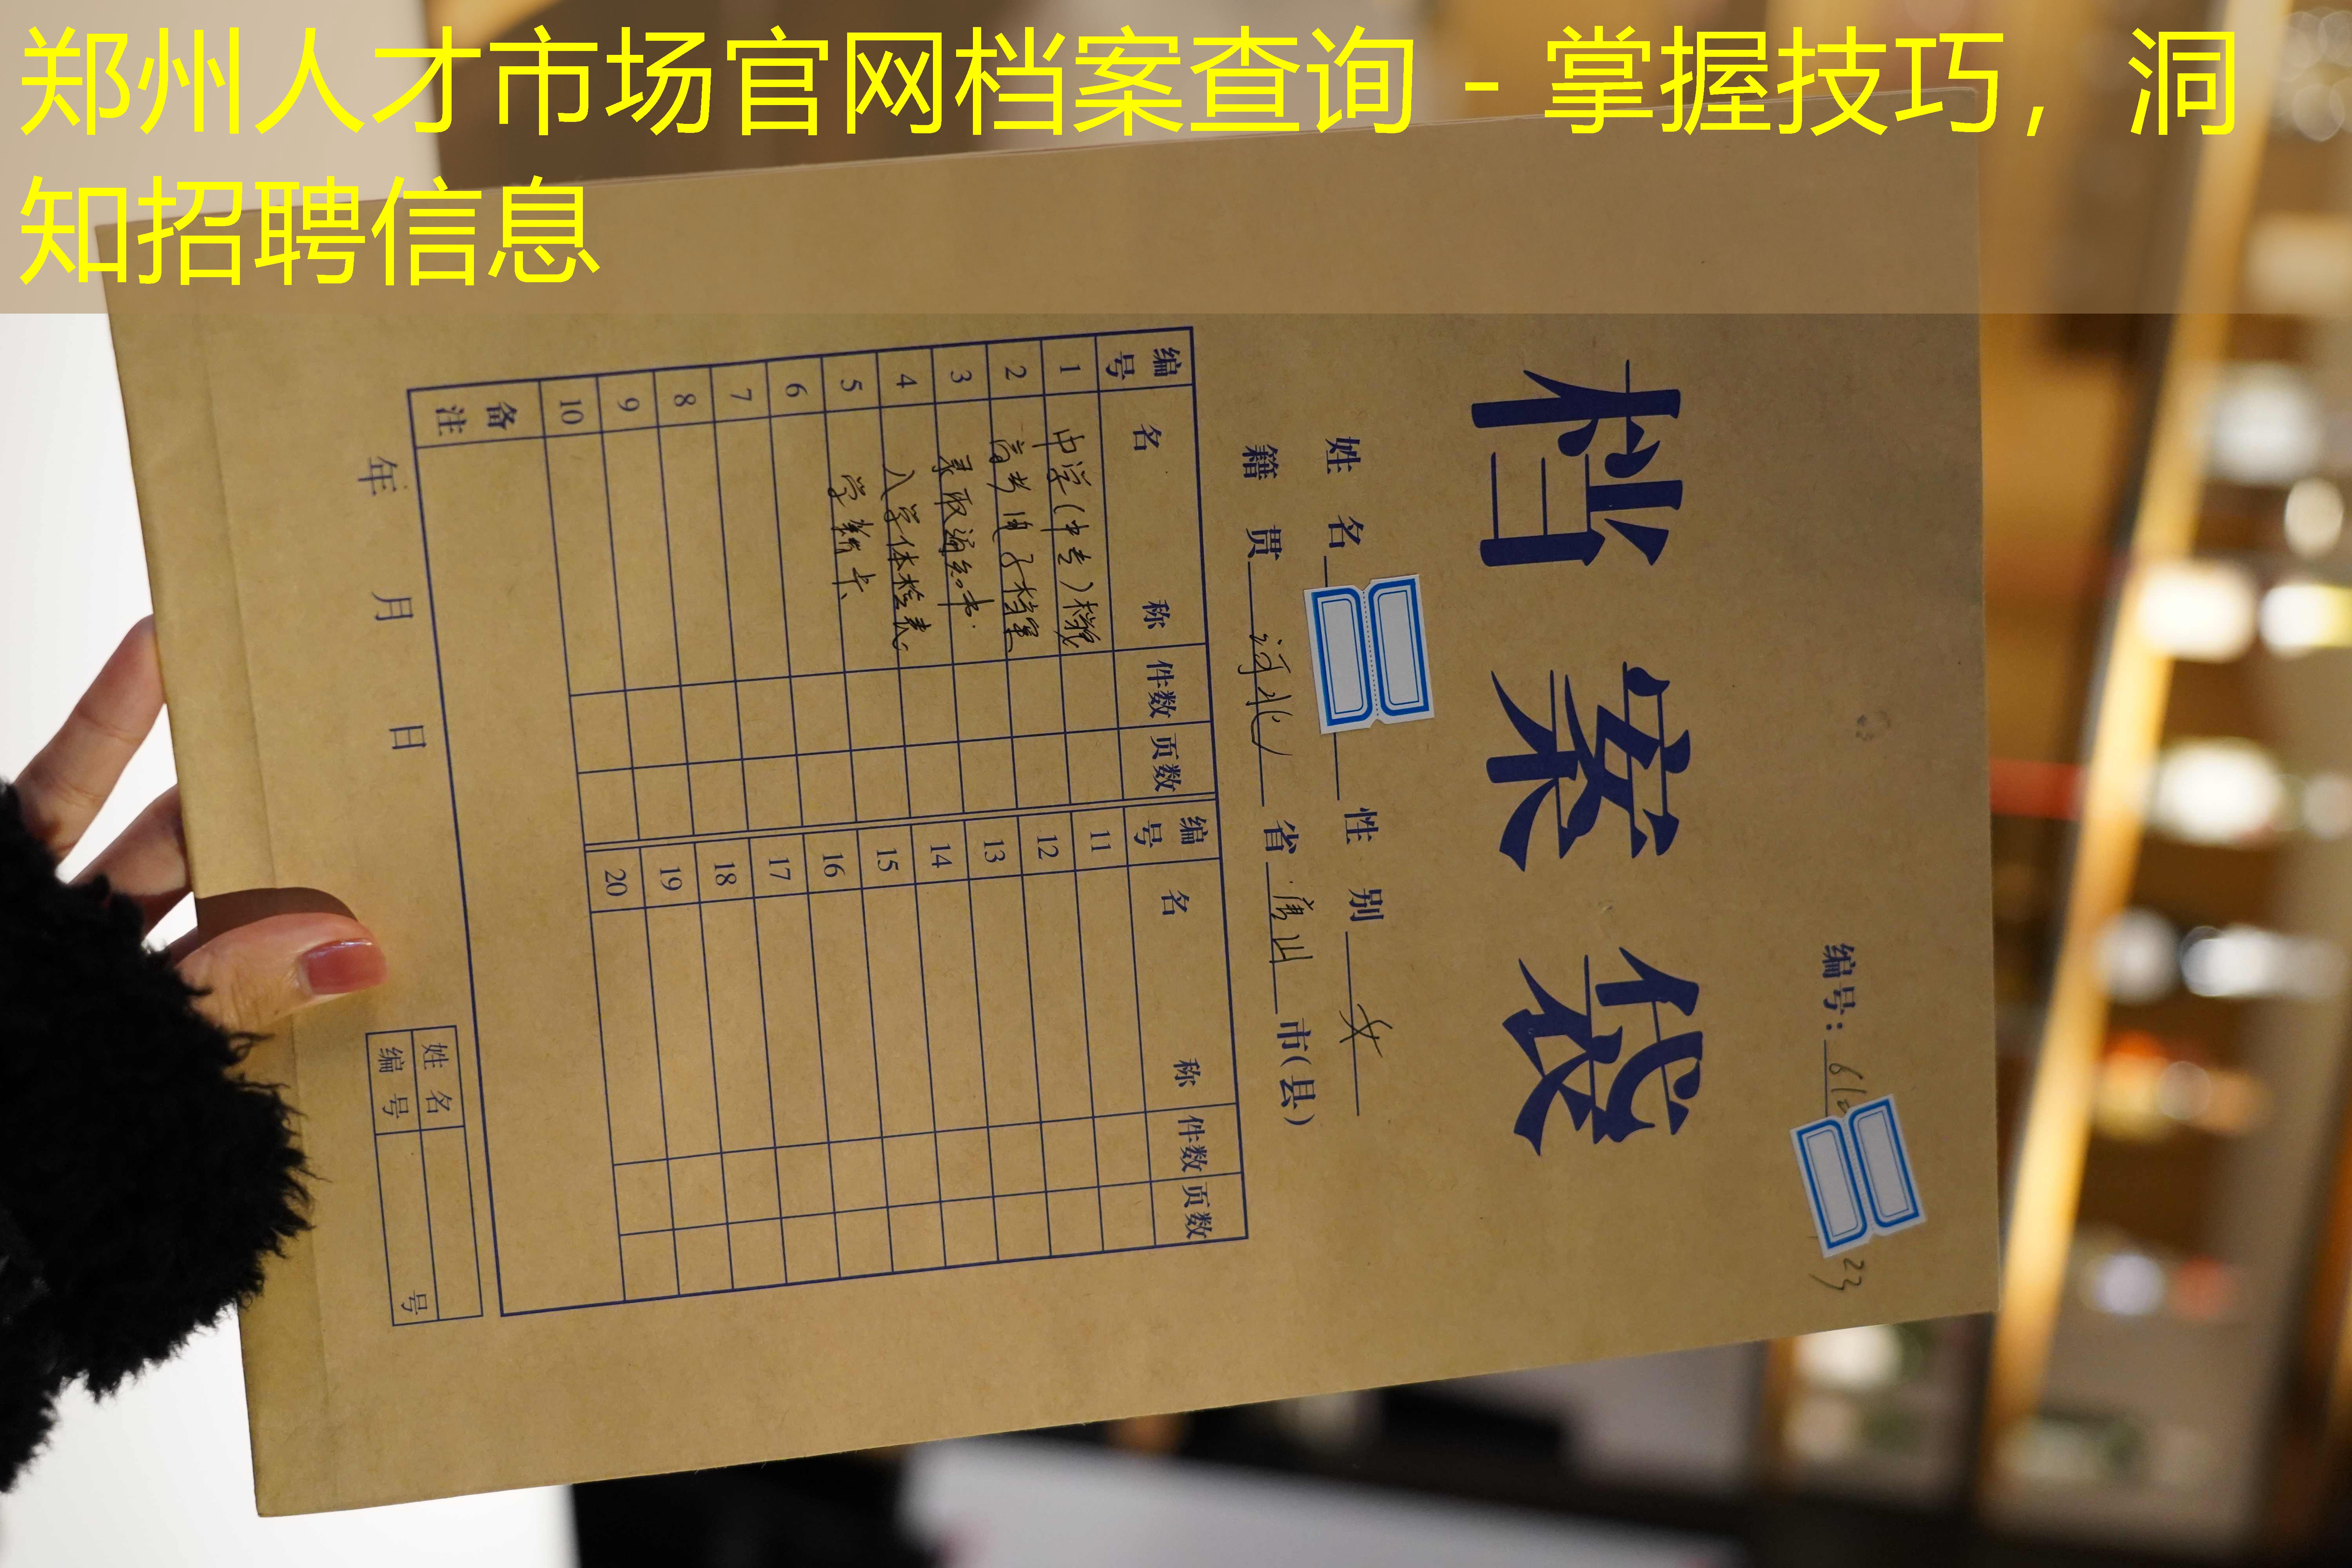 郑州人才市场官网档案查询 - 掌握技巧，洞
知招聘信息
编号：
23
档案袋
姓名 性别 女
籍贯 河北 省 唐山 市(县)
编号 名称 件数 页数 编号 名称 件数 页数
1 中学(中专)档案 11
2 高考电子档案 12
3 录取通知书 13
4 入学体检表 14
5 学籍卡 15
6 16
7 17
8 18
9 19
10 20
备注
年 月 日
姓名
编号 号